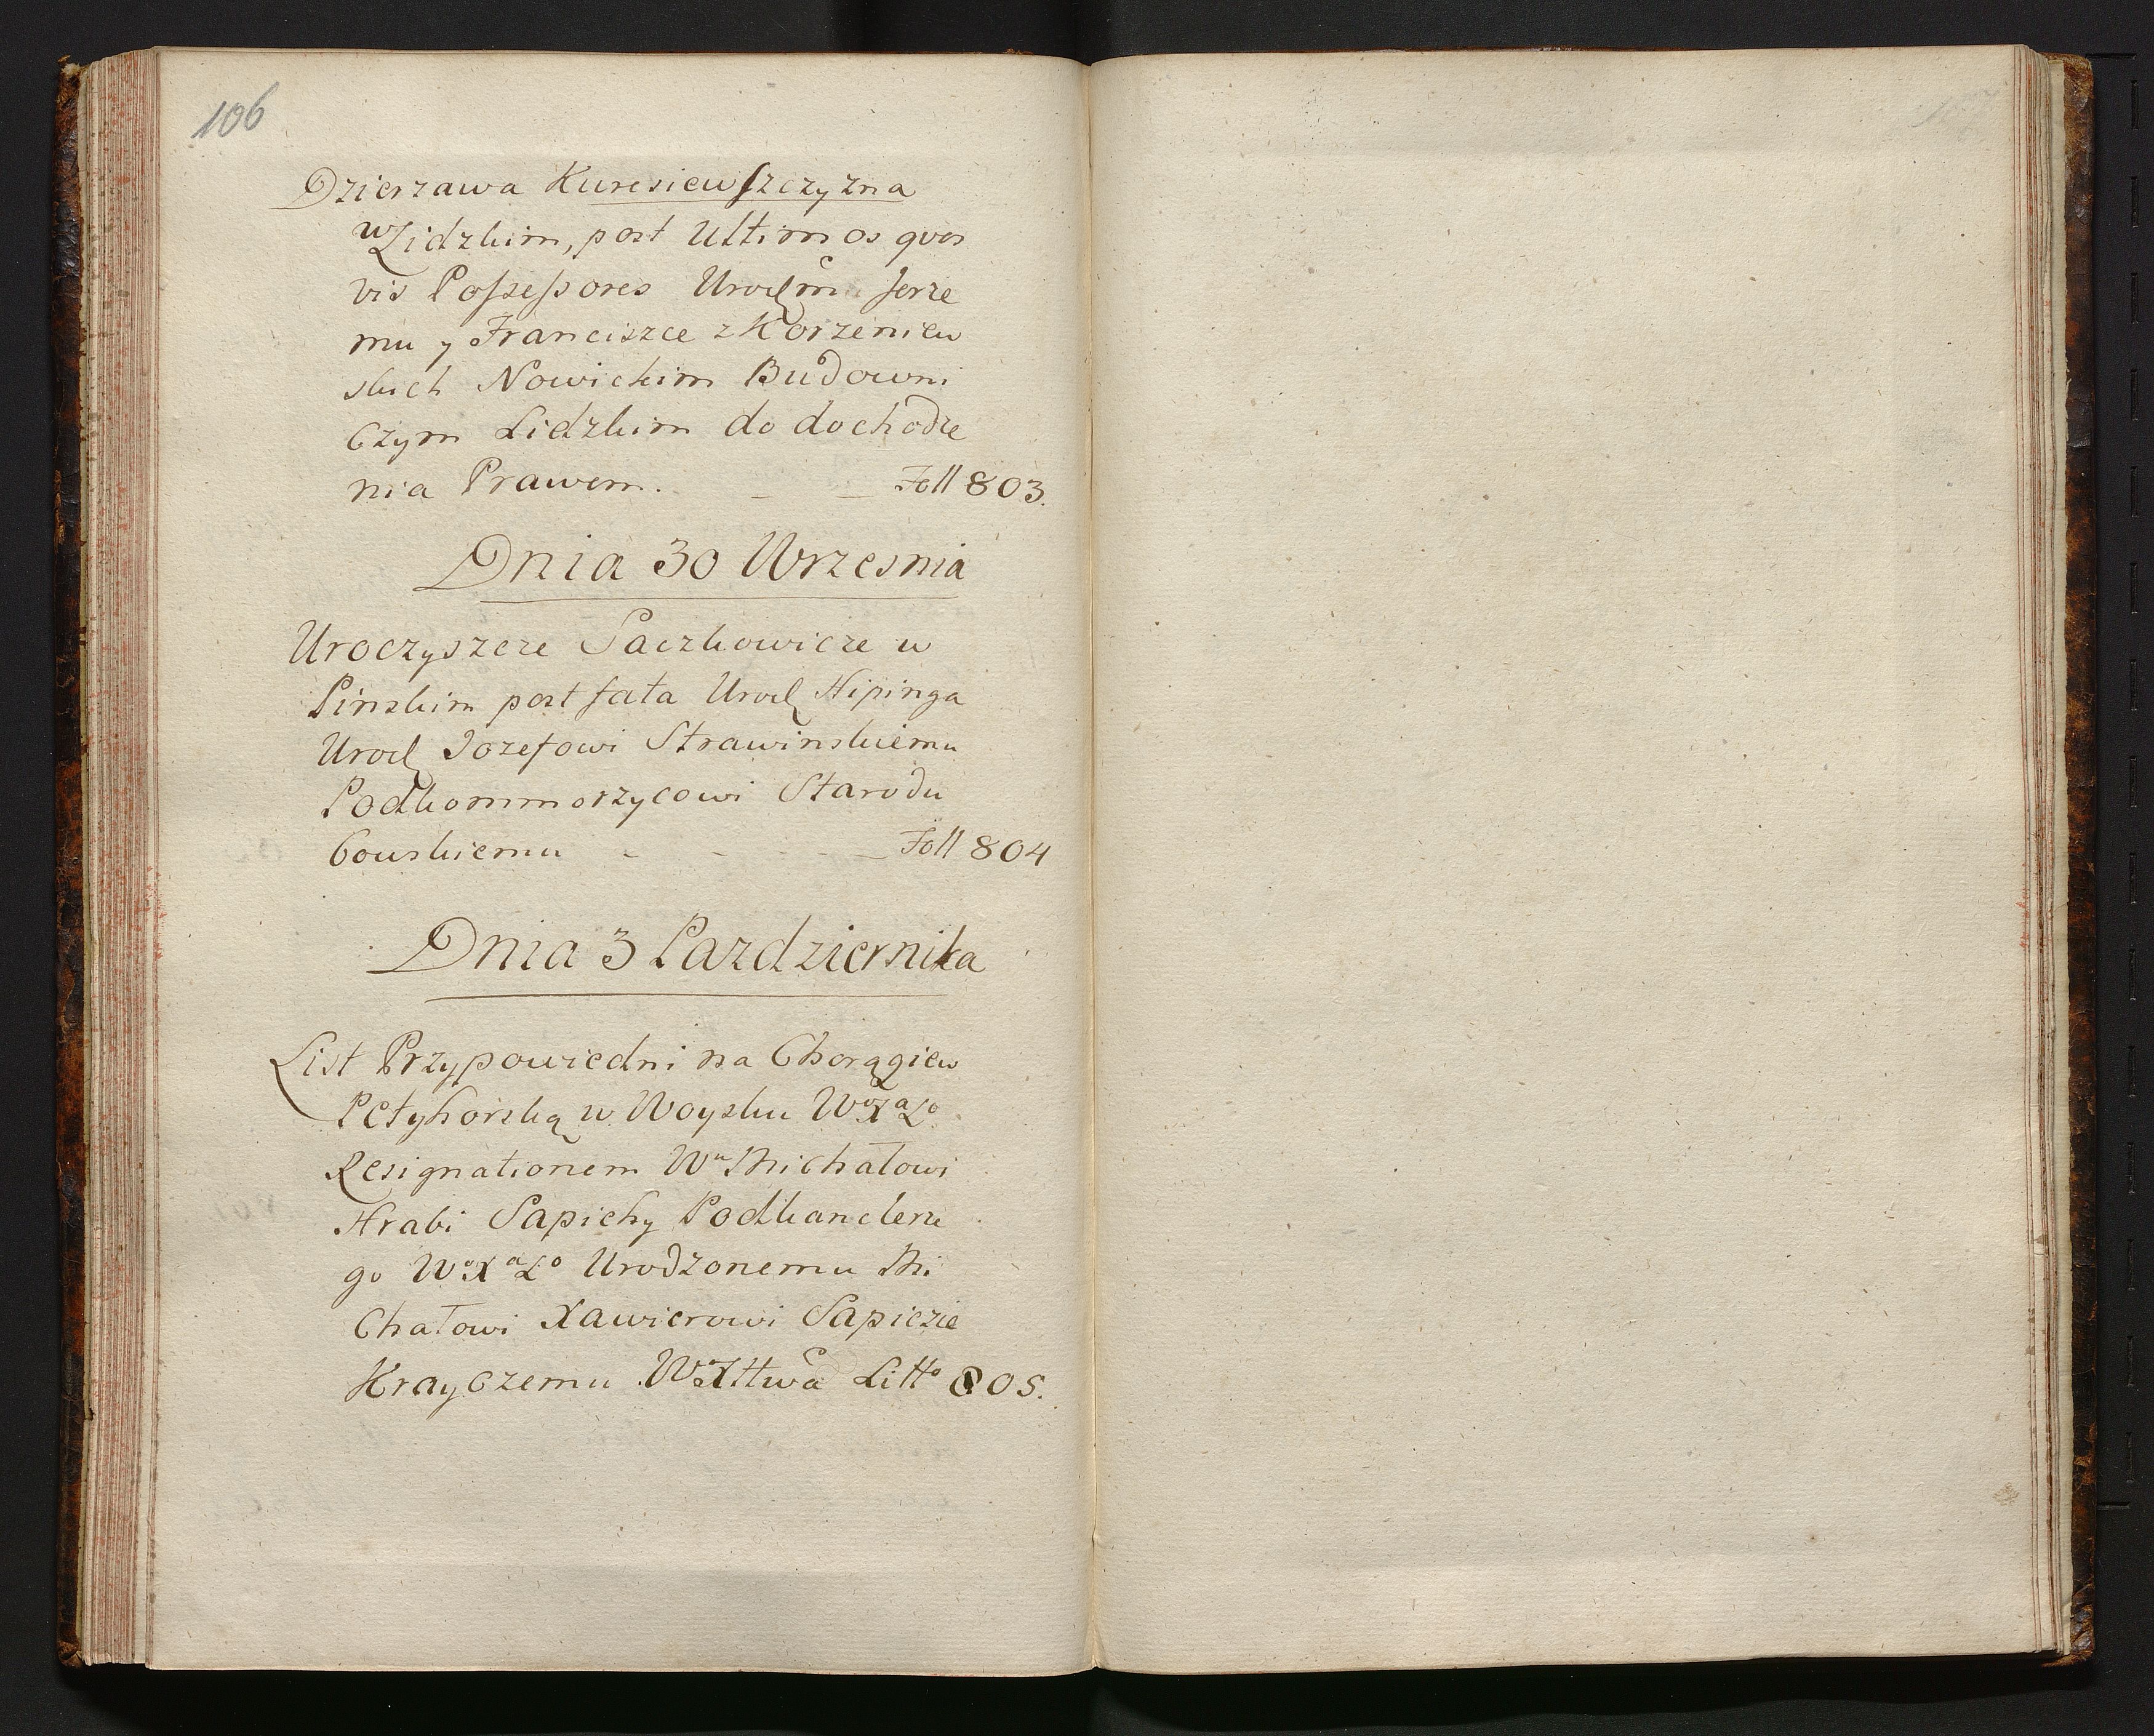 106
Dzierzawa Kuresiewszczyzna
w Lidzkim, post Ultimos quos
vis Possessores Urodz͠m Jerze
mu y Franciszce z Korzeniew
skich Nowickim Budowni
czym Lidzkim do dochodze
nia Prawem. _ _ Foll 803.
Dnia 30 Wrzesnia
Uroczyszcze Saczkowicze w
Pinskim post fata Urodz Hipinga
Urodz Jozefowi Strawinskiemu
Podkommorzycowi Starodu
bowskiemu - - - - Foll 804
Dnia 3 Pazdziernika
List Przypowiedni na Chorągiew
Petyhorską w Woysku WoXaLo
Resignationem Wu Michałowi
Hrabi Sapiehy Podkanclerze
go WoXaLo Urodzonemu Mi
chałowi Xawierowi Sapiezie
Krayczemu WoXLittwa Litto 805.